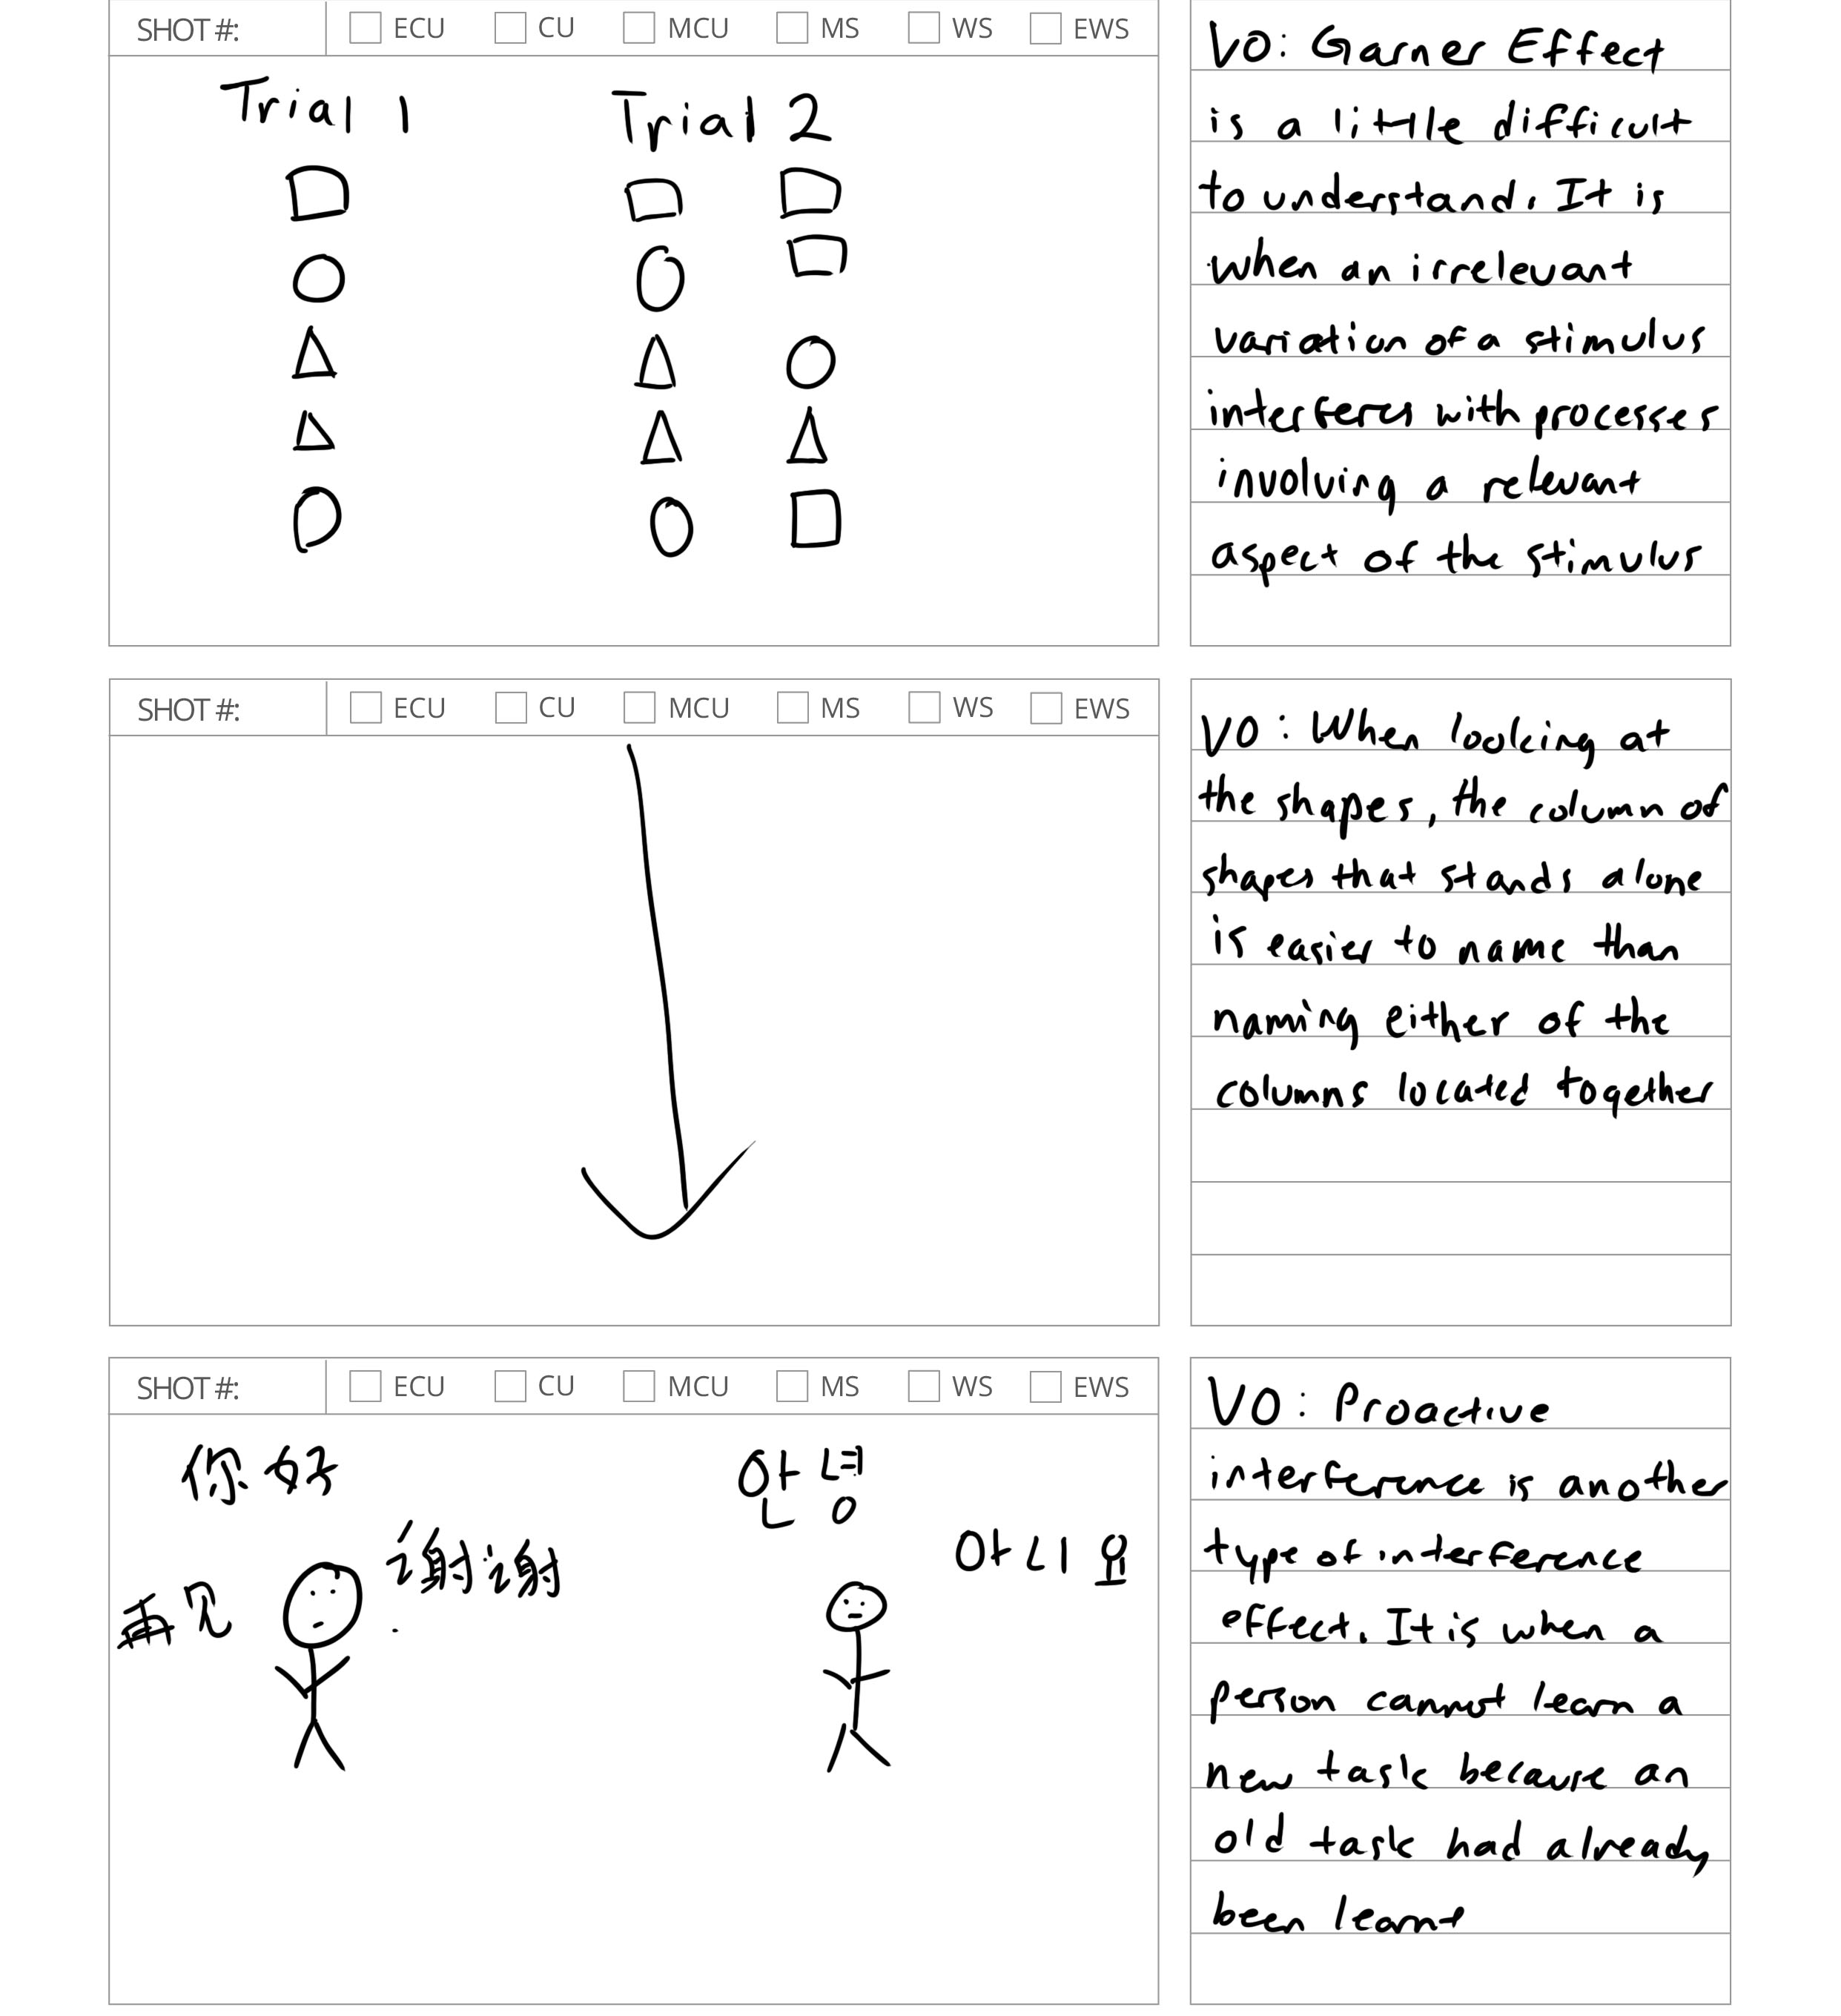 SHOT #: ECU CU MCU MS WS EWS
Trial 1 Trial 2
VO: Garner Effect
is a little difficult
to understand. It is
when an irrelevant
variation of a stimulus
interferes with processes
involving a relevant
aspect of the stimulus
SHOT #: ECU CU MCU MS WS EWS
VO: When looking at
the shapes, the column of
shapes that stands alone
is easier to name than
naming either of the
columns located together
SHOT #: ECU CU MCU MS WS EWS
你好
谢谢
再见
안녕
아니요
VO: Proactive
interference is another
type of interference
effect. It is when a
person cannot learn a
new task because an
old task had already
been learnt